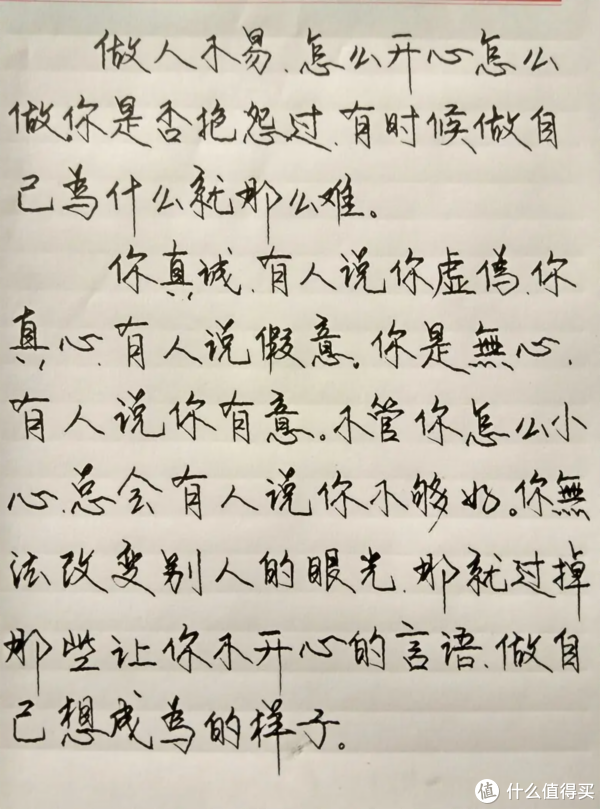 做人不易、怎么开心怎么
做。你是否抱怨过、有时候做自
己為什么就那么难。
你真诚、有人说你虚偽、你
真心、有人说假意。你是無心、
有人说你有意。不管你怎么小
心、总会有人说你不够好。你無
法改变别人的眼光、那就过掉
那些让你不开心的言语、做自
己想成為的样子。
值 什么值得买